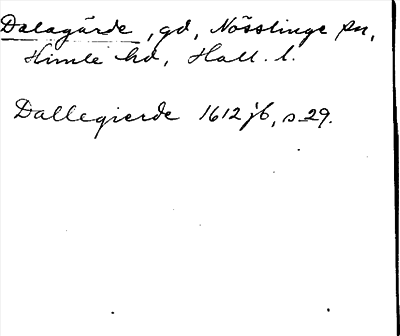 Dalagärde, gd, Nösslinge sn,
Himle hd, Hall. l.
Dallegierde 1612 jb, s 29.